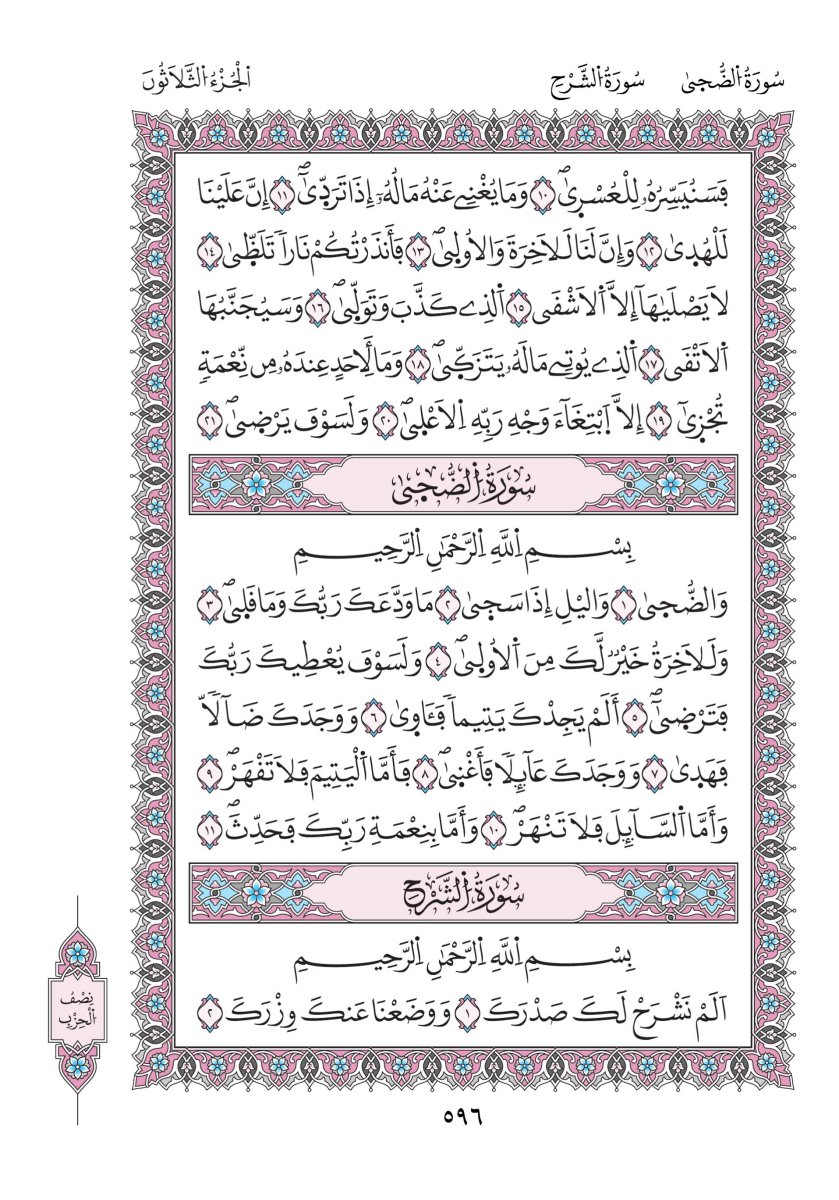 سُورَةُ الضُّحىٰ سُورَةُ الشَّرْحِ الْجُزْءُ الثَّلَاثُونَ
فَسَنُيَسِّرُهُۥ لِلْعُسْرىٰۖ ١٠ وَمَا يُغْنِے عَنْهُ مَالُهُۥٓ إِذَا تَرَدّىٰٓۖ ١١ إِنَّ عَلَيْنَا
لَلْهُدىٰ ١٢ وَإِنَّ لَنَا لَلَاخِرَةَ وَالُاولىٰۖ ١٣ فَأَنذَرْتُكُمْ نَاراٗ تَلَظّىٰ ١٤
لَا يَصْلَيٰهَآ إِلَّا اَلَاشْقَى ١٥ اَلذِے كَذَّبَ وَتَوَلّىٰۖ ١٦ وَسَيُجَنَّبُهَا
اَلَاتْقَى ١٧ اَلذِے يُوتِے مَالَهُۥ يَتَزَكّىٰۖ ١٨ وَمَا لِأَحَدٍ عِندَهُۥ مِن نِّعْمَةٖ
تُجْزىٰٓ ١٩ إِلَّا اَبْتِغَآءَ وَجْهِ رَبِّهِ اِلَاعْلىٰۖ ٢٠ وَلَسَوْفَ يَرْضىٰۖ ٢١
سُورَةُ الضُّحىٰ
بِسْمِ اِللَّهِ اِلرَّحْمَٰنِ اِلرَّحِيمِ
وَالضُّحىٰ ١ وَاليْلِ إِذَا سَجىٰ ٢ مَا وَدَّعَكَ رَبُّكَ وَمَا قَلىٰۖ ٣
وَلَلَاخِرَةُ خَيْرٞ لَّكَ مِنَ اَلُاولىٰۖ ٤ وَلَسَوْفَ يُعْطِيكَ رَبُّكَ
فَتَرْضىٰٓۖ ٥ أَلَمْ يَجِدْكَ يَتِيماٗ فَـَٔاوىٰ ٦ وَوَجَدَكَ ضَآلّاٗ
فَهَدىٰ ٧ وَوَجَدَكَ عَآئِلاٗ فَأَغْنىٰۖ ٨ فَأَمَّا اَلْيَتِيمَ فَلَا تَقْهَرْۖ ٩
وَأَمَّا اَلسَّآئِلَ فَلَا تَنْهَرْۖ ١٠ وَأَمَّا بِنِعْمَةِ رَبِّكَ فَحَدِّثْۖ ١١
سُورَةُ الشَّرْحِ
بِسْمِ اِللَّهِ اِلرَّحْمَٰنِ اِلرَّحِيمِ
اَلَمْ نَشْرَحْ لَكَ صَدْرَكَ ١ وَوَضَعْنَا عَنكَ وِزْرَكَ ٢
نِصْفُ
الْحِزْبِ
٥٩٦